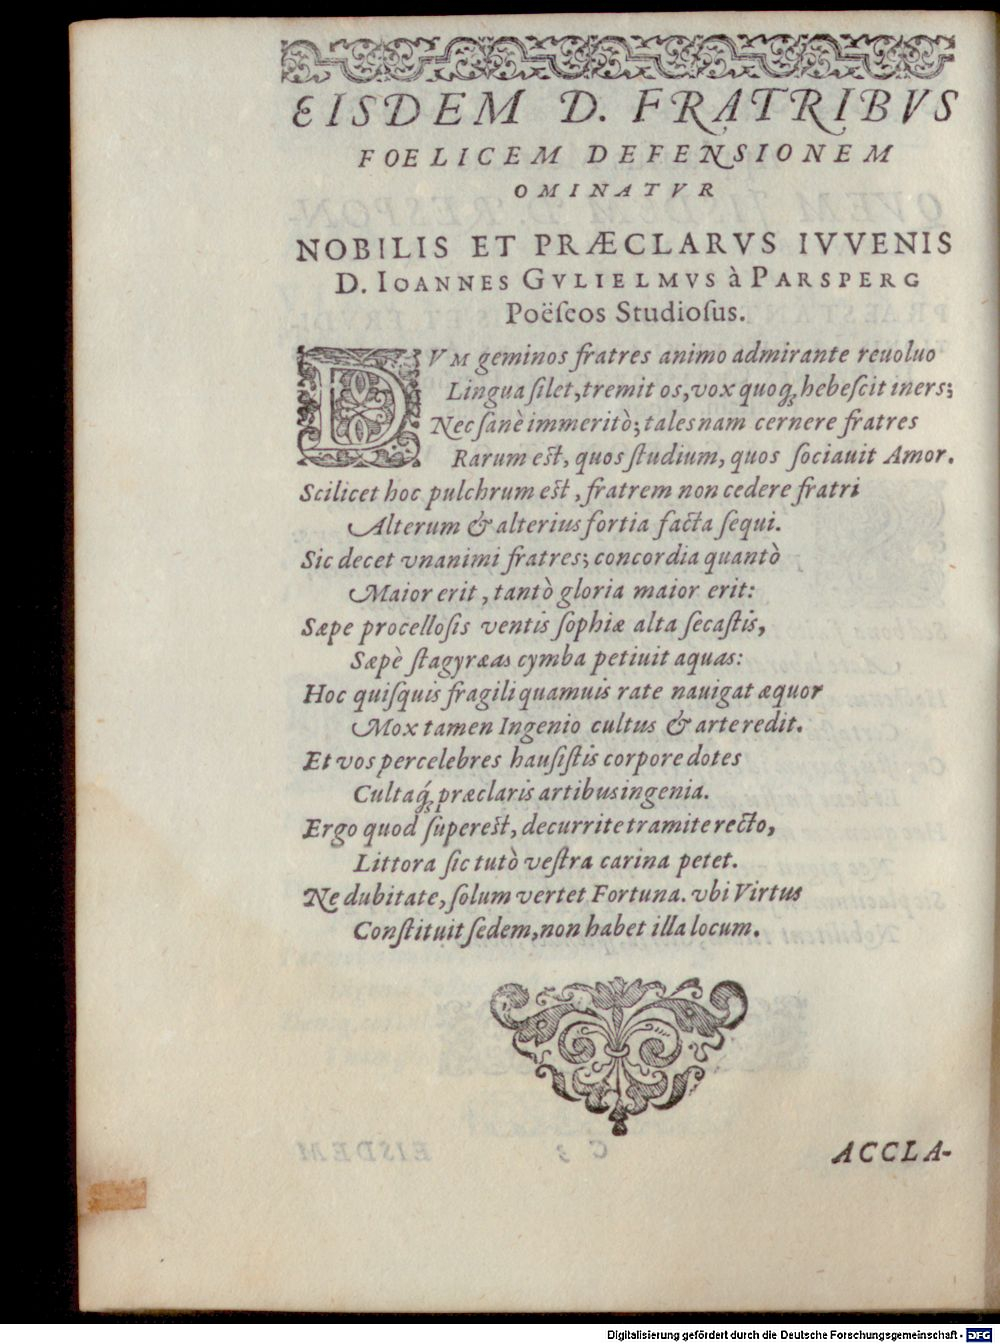 EISDEM D. FRATRIBVS
FOELICEM DEFENSIONEM
OMINATVR
NOBILIS ET PRÆCLARVS IVVENIS
D. IOANNES GVLIELMVS à PARSPERG
Poëſeos Studioſus.
DVM geminos fratres animo admirante reuoluo
Lingua ſilet, tremit os, vox quoq́; hebeſcit iners;
Nec ſanè immeritò; tales nam cernere fratres
Rarum est, quos ſtudium, quos ſociauit Amor.
Scilicet hoc pulchrum est, fratrem non cedere fratri
Alterum & alterius fortia facta ſequi.
Sic decet vnanimi fratres; concordia quantò
Maior erit, tantò gloria maior erit:
Sæpe procelloſis ventis ſophiæ alta ſecaſtis,
Sæpè ſtagyræas cymba petiuit aquas:
Hoc quiſquis fragili quamuis rate nauigat æquor
Mox tamen Ingenio cultus & arte redit.
Et vos percelebres hauſiſtis corpore dotes
Cultaq́; præclaris artibus ingenia.
Ergo quod ſuperest, decurrite tramite recto,
Littora ſic tutò veſtra carina petet.
Ne dubitate, ſolum vertet Fortuna. vbi Virtus
Conſtituit ſedem, non habet illa locum.
ACCLA-
Digitalisierung gefördert durch die Deutsche Forschungsgemeinschaft - DFG